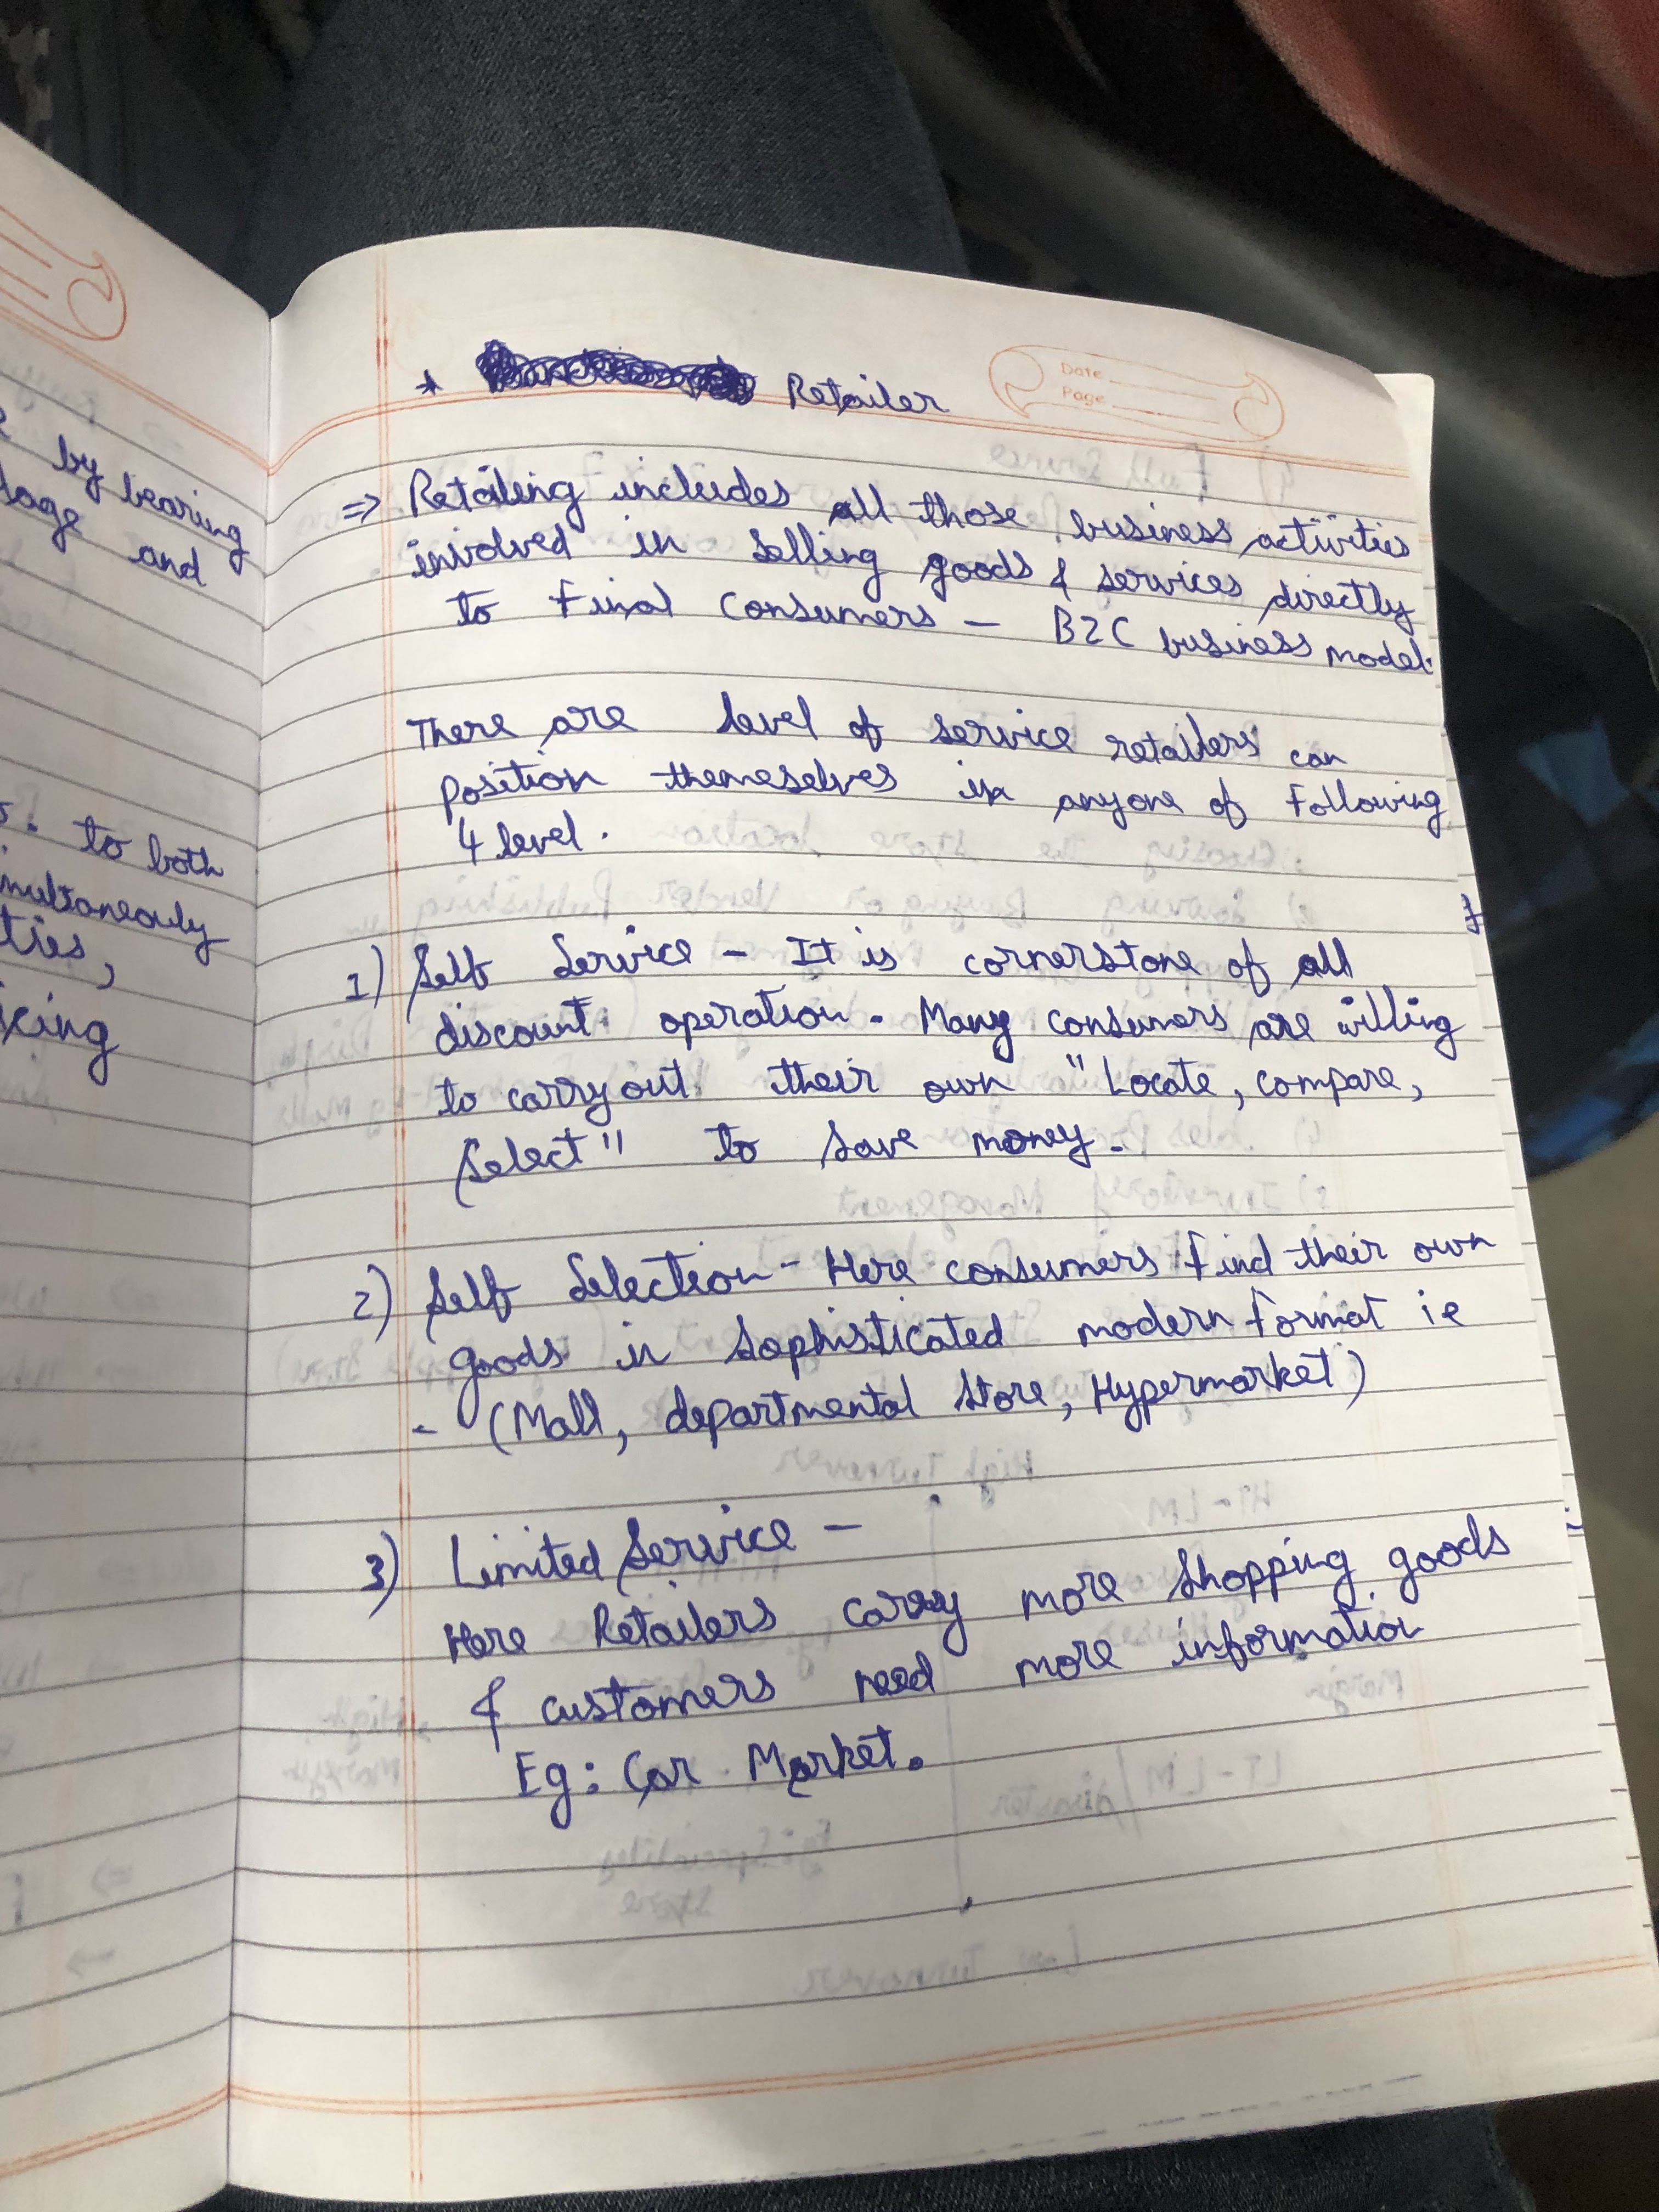 by bearing
and
to both
ties,
* Retailer
Date
Page
=> Retailing includes all those business activities
involved in selling goods & services directly
to Final consumers – B2C business model.
There are level of service retailers can
position themeselves in anyone of Following
4 level.
1) Self Service – It is cornerstone of all
discount operation. Many consumers are willing
to carry out their own "Locate, compare,
Select" to save money.
2) Self Selection – Here consumers find their own
goods in Sophisticated modern format ie
- (Mall, departmental Store, Hypermarket)
3) Limited Service –
Here Retailers carry more shopping goods
& customers need more information
Eg: Car Market.